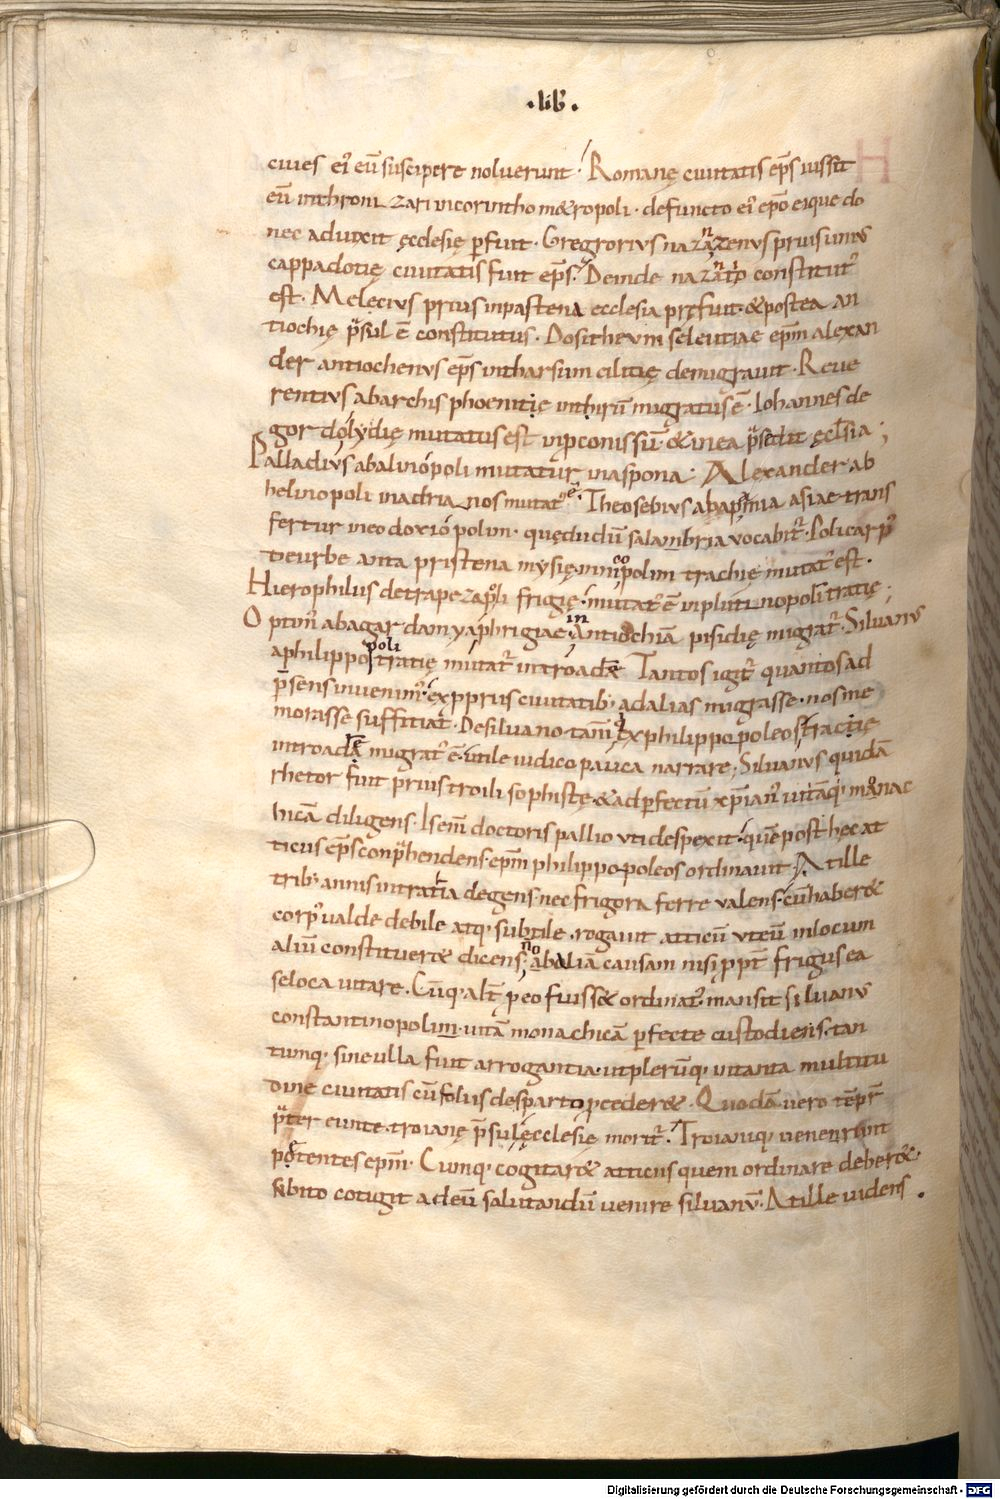 ·lib̄·
ciues ei' eū suscipere noluerunt · Romanę ciuitatis ep̄s iussit
eū inthronizari in corintho metropoli · defuncto ei' ep̄o eique do
nec aduixit ęcclesię p̄fuit · Gregrorius nazanzenus prius unius
cappadotię ciuitatis fuit ep̄s · Deinde nazanzo constitut'
est · Melęcius prius inpastena ecclesia pręfuit · & postea an
tiochię p̄sul ē constitutus · Dositheum seleutiae ep̄m alexan
der antiochenus ep̄s intharsum cilitię demigrauit · Reue
rentius abarchis phoenitię inthirū migratus ē · Iohannes de
gordolydię mutatus est inp̄conissū · & inea p̄sedit ęclsia ;
Palladius abalinópoli mutatur inaspona · Alexander ab
helinopoli inadrianos mutat' ē · Theosebius abapamia asiae trans
fertur ineodoxiópolim · quędudū salambria vocabit᷑ · Policarp'
deurbe anta pristena mysię innicopolim trachię mutat' est ·
Hierophilus detrapezapoli frigię · mutat' ē inplutinopoli tratię ;
Optim' abagardamya phrigiae · in Antiochiā pisidię migrat᷑ · Siluanus
aphilippopoli tratię mutat᷑ introadē Tantos igit᷑ quantos ad
p̄sens inuenim' · exp̄prius ciuitatib; adalias migrasse · nos me
morasse suffitiat · Desiluano tam̄ q ex philippopoleos tractię
introadē migrat' ē · utile iudico pauca narrare ; Siluanus quidā
rhetor fuit prius troili sophistę · & ad p̄fectū xp̄ian' uitāq; monac
hicā diligens · Isem̄ doctoris pallio uti despexit · quē post hęc at
ticus ep̄s conp̄hendens · ep̄m philippopoleos ordinauit · At ille
trib; annis intratia degens · nec frigora ferre valens · cū haber&
corp' ualde debile atq; subtile · rogauit atticū vt eū inlocum
aliū constituer& dicens · no abaliā causam nisi p̄pt̄ frigus ea
se loca uitare · Cūq; alt̄ p eo fuiss& ordinat' · mansit siluanus
constantinopolim · uitā monachicā p̄fecte custodiens · tan
tumq; sine ulla fuit arrogantia · ut plerūq; intanta multitu
dine ciuitatis cū solus desparto p̄ceder& · Quodā uero tēpr̄
p̄ter eunte · troianę p̄sulę ecclesię morit᷑ · Troianiq; uenerunt
potentes ep̄m · Cumq; cogitar& atticus quem ordinare deber& ·
subito cotigit ad eū salutandū uenire siluanū · At ille uidens ·
Digitalisierung gefördert durch die Deutsche Forschungsgemeinschaft - DFG